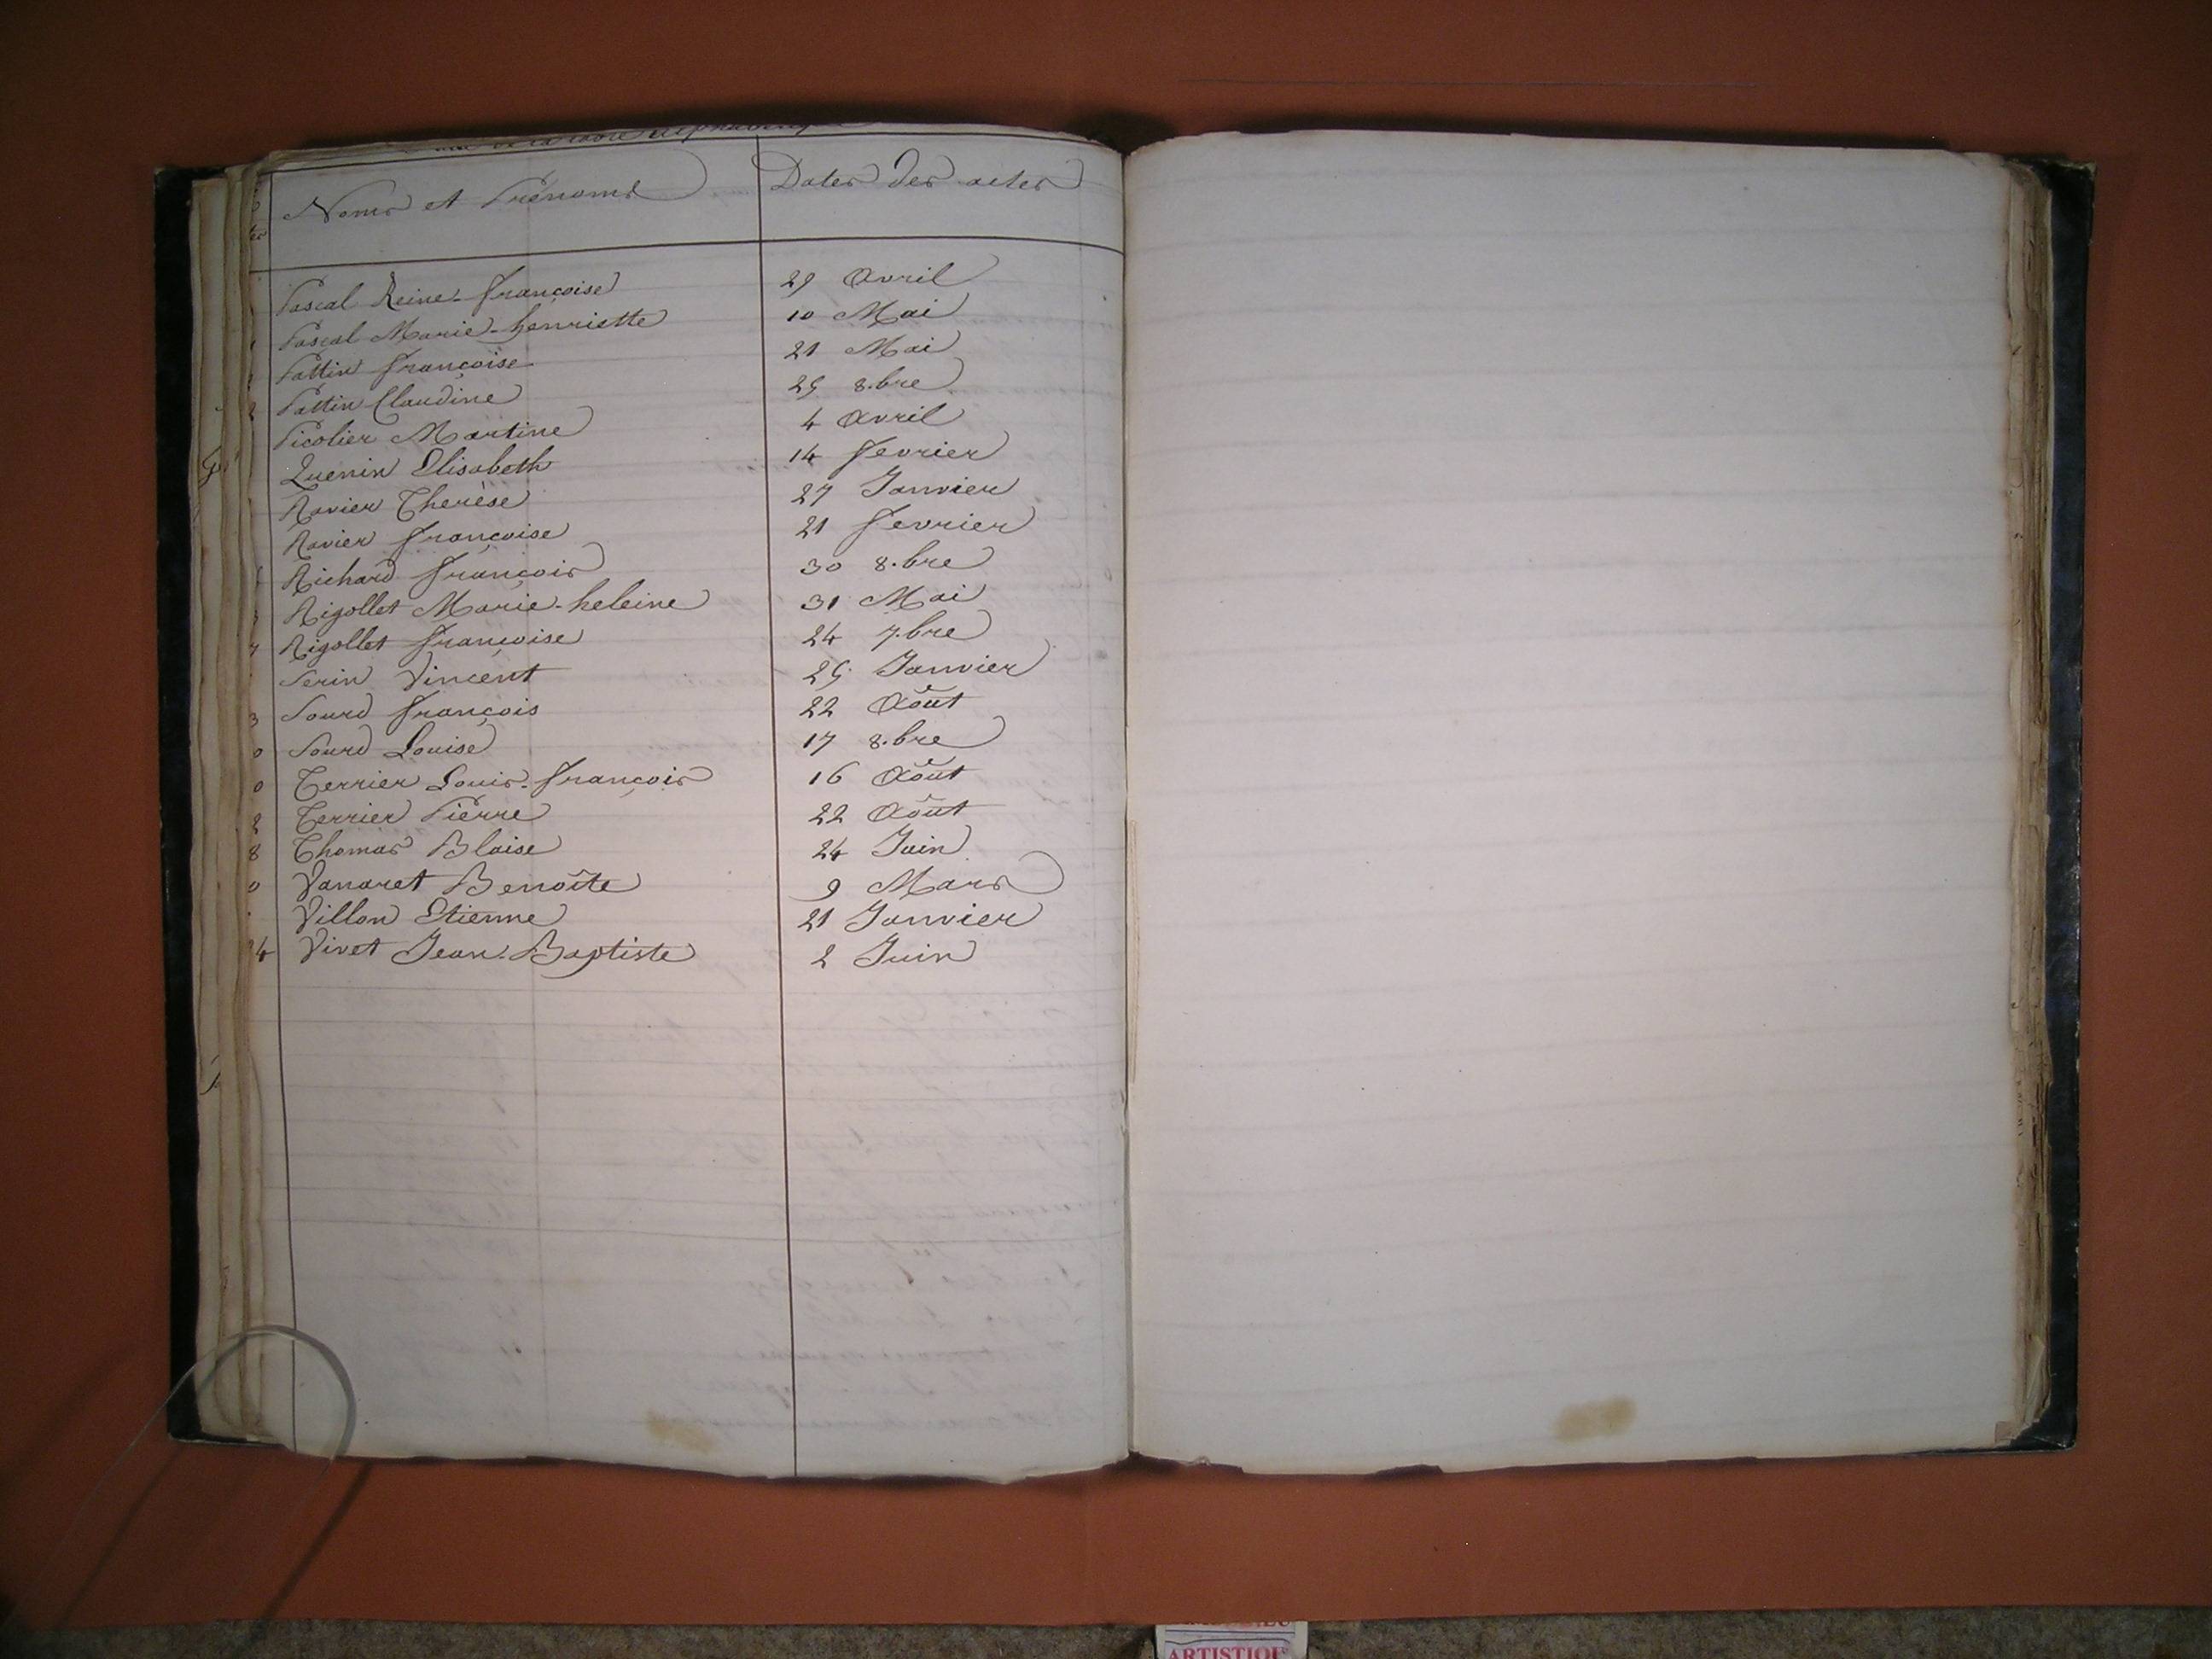 de la table alphabétiq
Noms et Prénoms Dates des actes
Pascal Reine-françoise 29 Avril
1 Pascal Marie-henriette 10 Mai
Pattin françoise 21 Mai
2 Pattin Claudine 25 8.bre
Picolier Martine 4 Avril
Quenin Elisabeth 14 fevrier
Ravier Therèse 27 Janvier
Ravier françoise 21 fevrier
Richard françois 30 8.bre
3 Rigollet Marie-heleine 31 Mai
7 Rigollet françoise 24 7.bre
Serin Vincent 25 Janvier
3 Sourd françois 22 Aôut
0 Sourd Louise 17 8.bre
0 Terrier Louis-françois 16 Aôut
2 Terrier Pierre 22 Aôut
8 Thomas Blaise 24 Juin
0 Vanaret Benoîte 9 Mars
Villon Etienne 21 Janvier
24 Vivet Jean-Baptiste 2 Juin
ARTISTIQUE